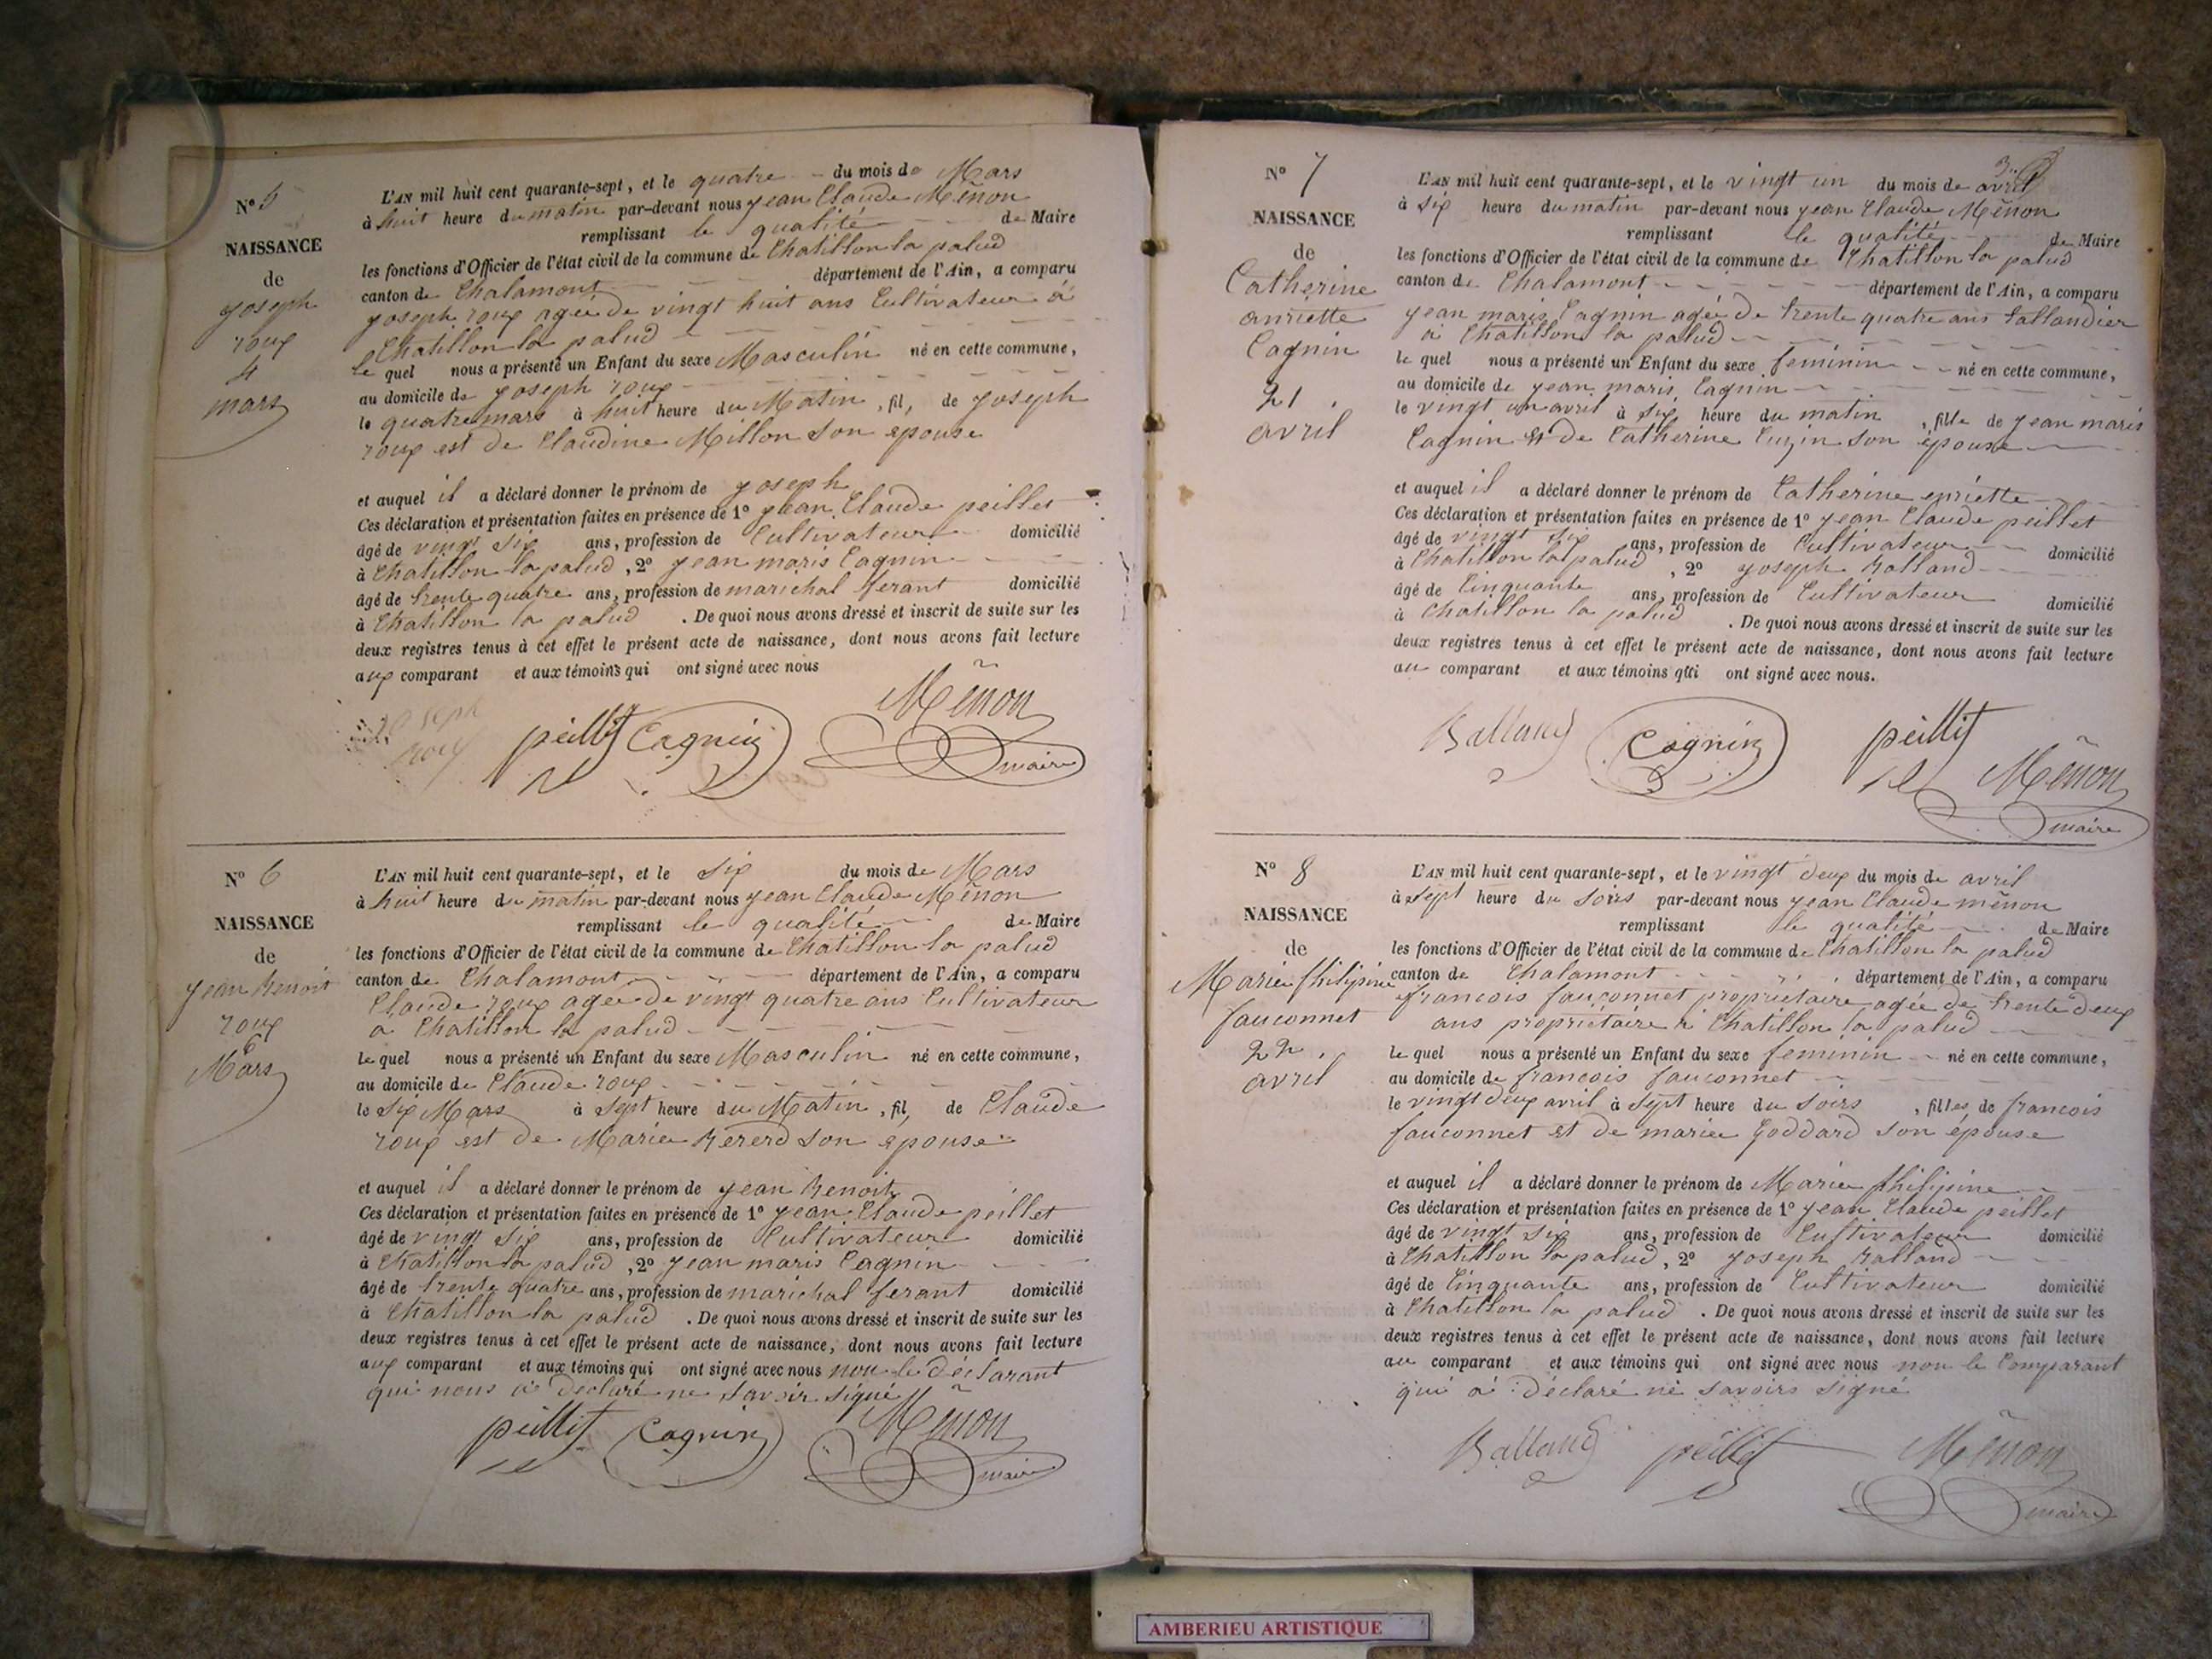 N° 5
NAISSANCE
de
joseph
roux
4
mars
L'AN mil huit cent quarante-sept, et le quatre du mois de Mars
à huit heure du matin par-devant nous jean Claude Mẽnon
remplissant le qualité de Maire
les fonctions d'Officier de l'état civil de la commune de Chatillon la palud
canton de Chalamont département de l'Ain, a comparu
joseph roux agée de vingt huit ans Cultivateur à
Chatillon la palud
le quel nous a présenté un Enfant du sexe Masculin né en cette commune,
au domicile de joseph roux
le quatre mars à huit heure du Matin, fil, de joseph
roux est de Claudine Millon son epouse
et auquel il a déclaré donner le prénom de joseph
Ces déclaration et présentation faites en présence de 1° jean Claude peillet
âgé de vingt six ans, profession de Cultivateur domicilié
à Chatillon la palud, 2° jean maris Cagnin
âgé de trente quatre ans, profession de marichal ferant domicilié
à Chatillon la palud. De quoi nous avons dressé et inscrit de suite sur les
deux registres tenus à cet effet le présent acte de naissance, dont nous avons fait lecture
aux comparant et aux témoins qui ont signé avec nous
joseph
roux
peillet Cagnin Mẽnon
maire
N° 6
NAISSANCE
de
jean Benoit
roux
6
Mars
L'AN mil huit cent quarante-sept, et le six du mois de Mars
à huit heure du matin par-devant nous jean Claude Mẽnon
remplissant le qualité de Maire
les fonctions d'Officier de l'état civil de la commune de Chatillon la palud
canton de Chalamont département de l'Ain, a comparu
Claude roux agée de vingt quatre ans Cultivateur
a Chatillon la palud
le quel nous a présenté un Enfant du sexe Masculin né en cette commune,
au domicile de Claude roux
le six Mars à sept heure du Matin, fil, de Claude
roux est de Marie son epouse
et auquel il a déclaré donner le prénom de jean Benoit
Ces déclaration et présentation faites en présence de 1° jean Claude peillet
âgé de vingt six ans, profession de Cultivateur domicilié
à Chatillon la palud, 2° jean maris Cagnin
âgé de trente quatre ans, profession de marichal ferant domicilié
à Chatillon la palud. De quoi nous avons dressé et inscrit de suite sur les
deux registres tenus à cet effet le présent acte de naissance, dont nous avons fait lecture
aux comparant et aux témoins qui ont signé avec nous non le déclarant
qui nous à déclaré ne savoir signé
peillet Cagnin Mẽnon
maire
N° 7
NAISSANCE
de
Catherine
anriette
Cagnin
21
avril
3
L'AN mil huit cent quarante-sept, et le vingt un du mois de avril
à six heure du matin par-devant nous jean Claude Mẽnon
remplissant le qualité de Maire
les fonctions d'Officier de l'état civil de la commune de Chatillon la palud
canton de Chalamont département de l'Ain, a comparu
jean maris Cagnin agée de trente quatre ans tallandier
à Chatillon la palud
le quel nous a présenté un Enfant du sexe feminin né en cette commune,
au domicile de jean maris Cagnin
le vingt un avril à six heure du matin, fille de jean maris
Cagnin et de Catherine Cuzin son épouse
et auquel il a déclaré donner le prénom de Catherine enriette
Ces déclaration et présentation faites en présence de 1° jean Claude peillet
âgé de vingt six ans, profession de Cultivateur domicilié
à Chatillon la palud, 2° joseph Balland
âgé de Cinquante ans, profession de Cultivateur domicilié
à Chatillon la palud. De quoi nous avons dressé et inscrit de suite sur les
deux registres tenus à cet effet le présent acte de naissance, dont nous avons fait lecture
au comparant et aux témoins qui ont signé avec nous.
Balland Cagnin peillet
Mẽnon
maire
N° 8
NAISSANCE
de
Marie philipine
fauconnet
22
avril
L'AN mil huit cent quarante-sept, et le vingt deux du mois de avril
à sept heure du soirs par-devant nous jean Claude mẽnon
remplissant le qualité de Maire
les fonctions d'Officier de l'état civil de la commune de Chatillon la palud
canton de Chalamont département de l'Ain, a comparu
francois fauconnet propriètaire agée de trente deux
ans propriètaire à Chatillon la palud
le quel nous a présenté un Enfant du sexe feminin né en cette commune,
au domicile de francois fauconnet
le vingt deux avril à sept heure du soirs, filles de francois
fauconnet et de marie Goddard son épouse
et auquel il a déclaré donner le prénom de Marie philipine
Ces déclaration et présentation faites en présence de 1° jean Claude peillet
âgé de vingt six ans, profession de Cultivateur domicilié
à Chatillon la palud, 2° joseph Balland
âgé de Cinquante ans, profession de Cultivateur domicilié
à Chatillon la palud. De quoi nous avons dressé et inscrit de suite sur les
deux registres tenus à cet effet le présent acte de naissance, dont nous avons fait lecture
au comparant et aux témoins qui ont signé avec nous non le Comparant
qui à déclaré nè savoirs signé
Balland peillet Mẽnon
maire
AMBERIEU ARTISTIQUE